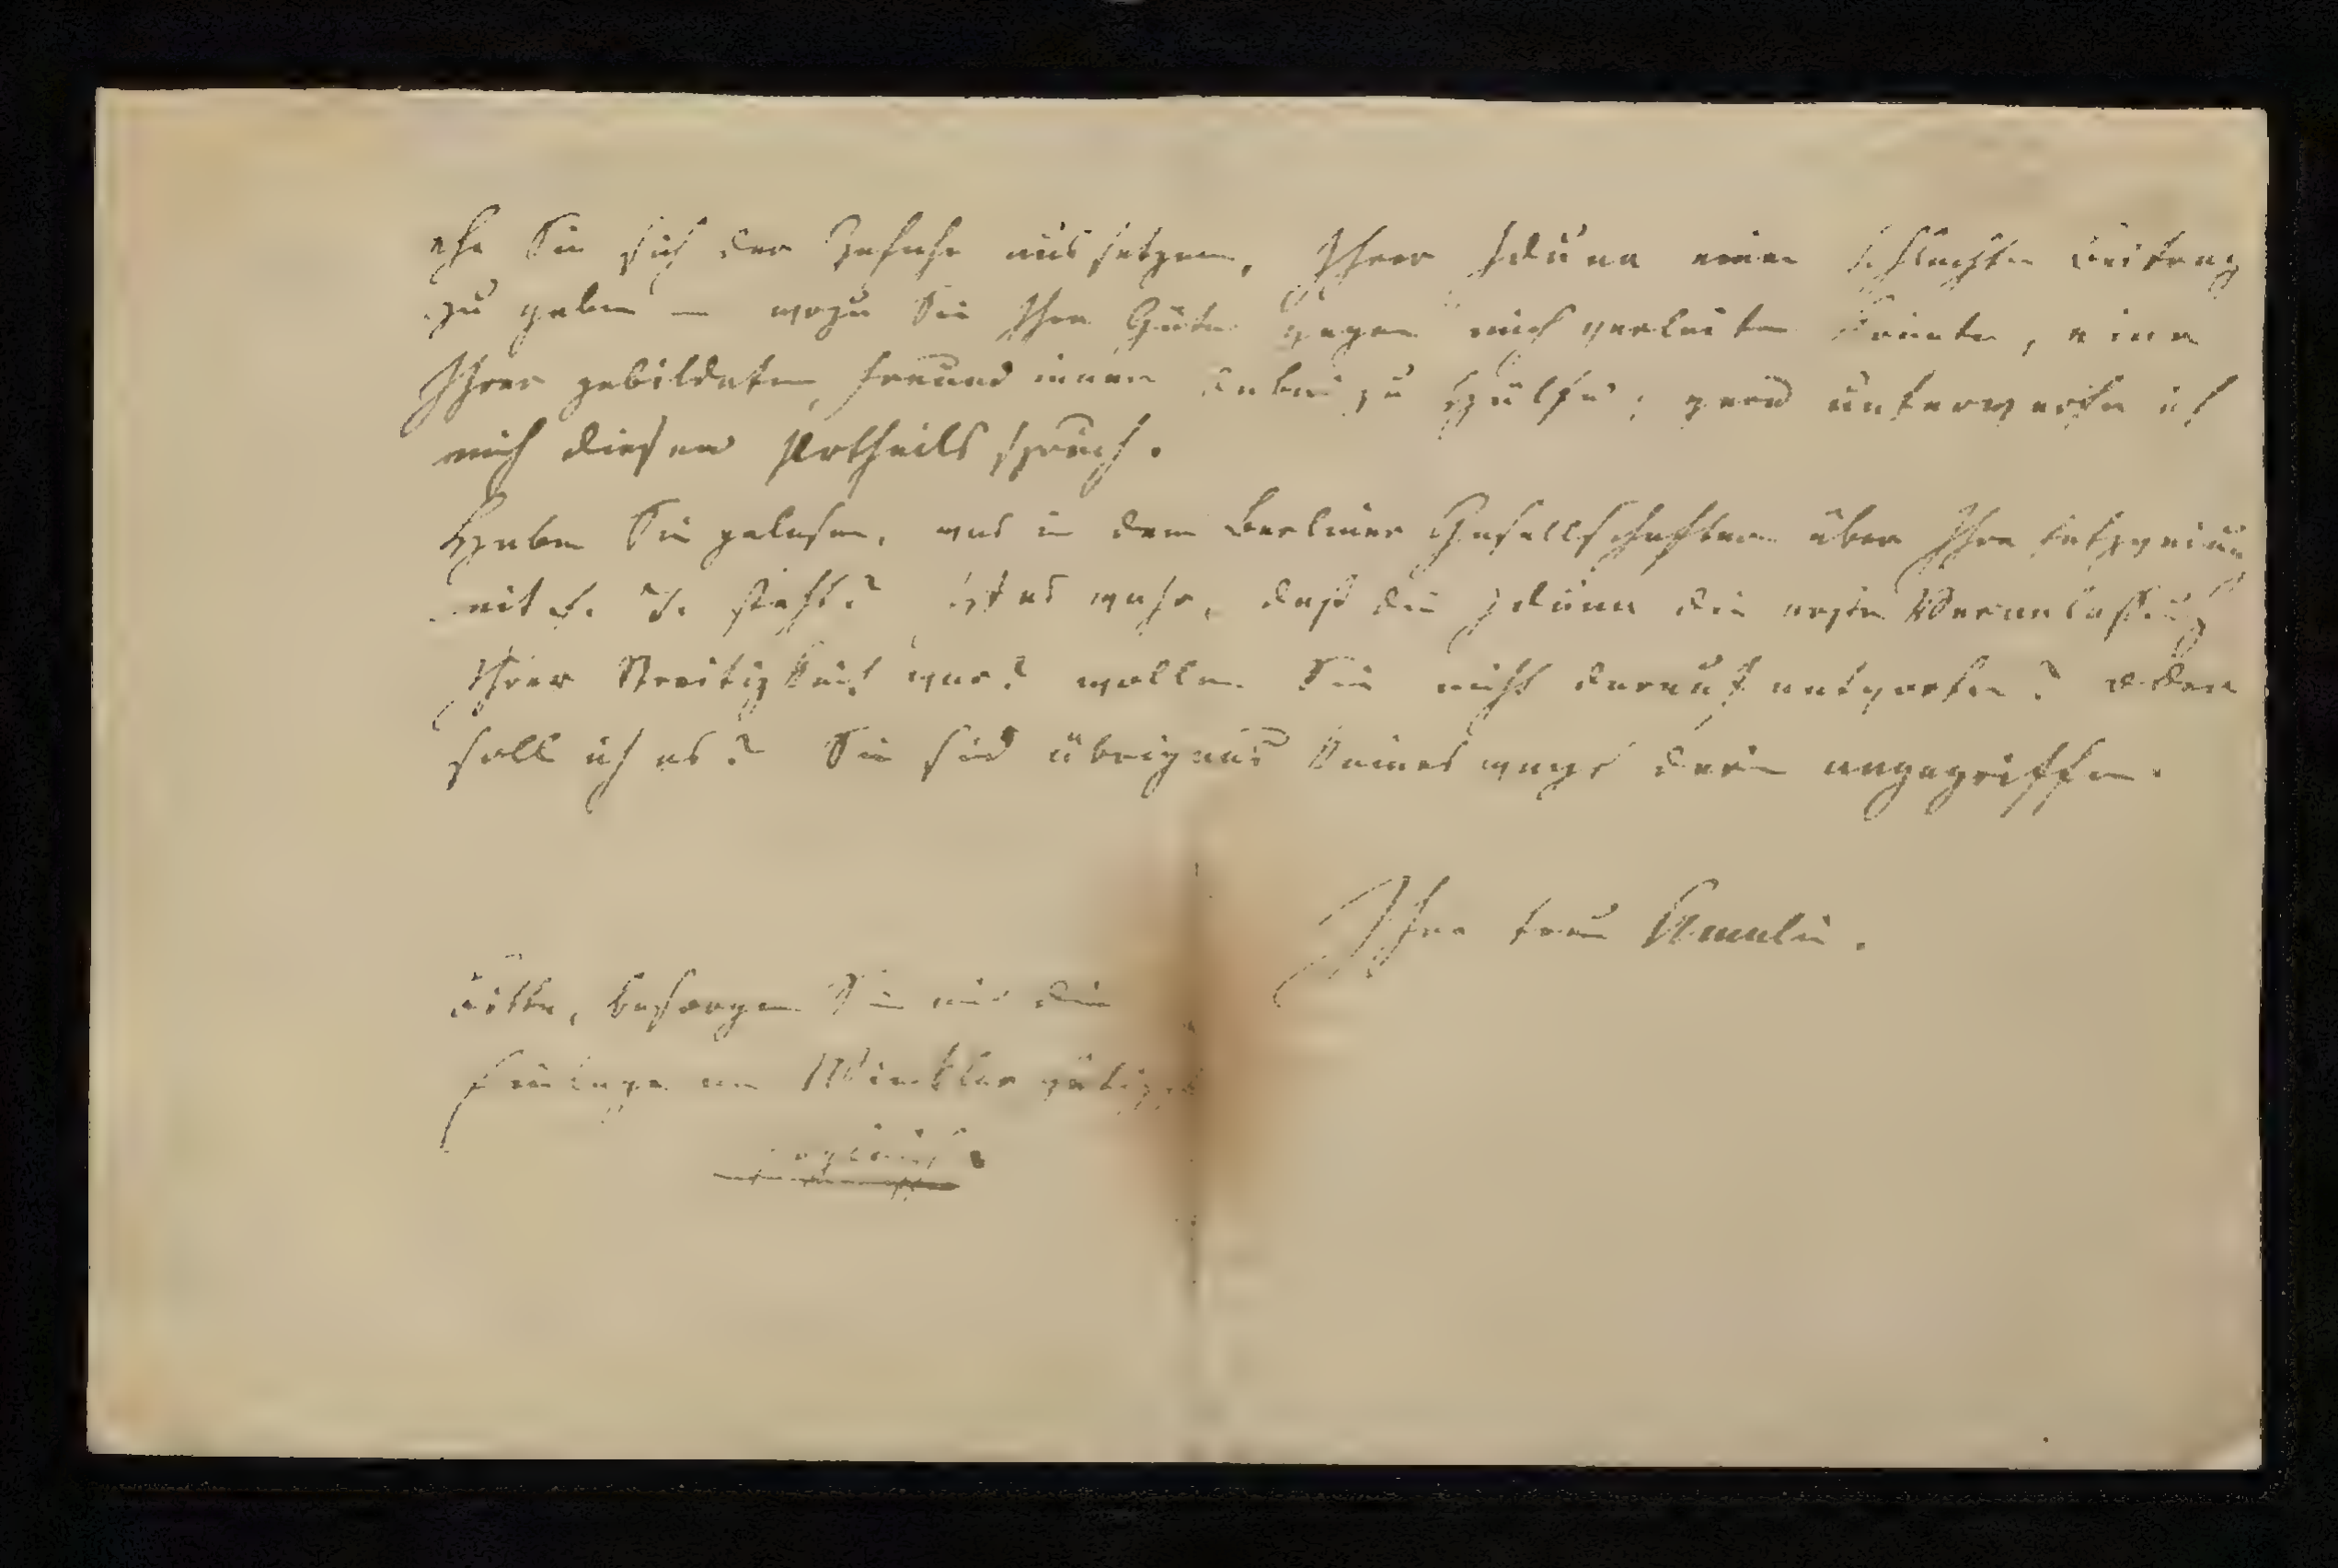 ehe Sie sich der Gefahr aussetzen, Ihrer Iduna einen schlechten Beitrag
zu geben — wozu Sie Ihre Güte gegen mich verleiten könnte, eine
Ihrer gebildeten Freundinnen dabei zu Hülfe; gern unterwerfe ich
mich diesem Urtheilsspruch.
Haben Sie gelesen, was in dem Berliner Gesellschafter über Ihre
mit steht? ist es wahr, daß die Iduna die erste Veranlassung
Ihrer Streitigkeit war? wollen Sie nicht darauf antworten? oder
soll ich es? Sie sind übrigens keineswegs darin angegriffen.
Ihre treue Amalie.
Bitte, besorgen Sie mir die
Einlage an Winkler gütigst
sogleich.